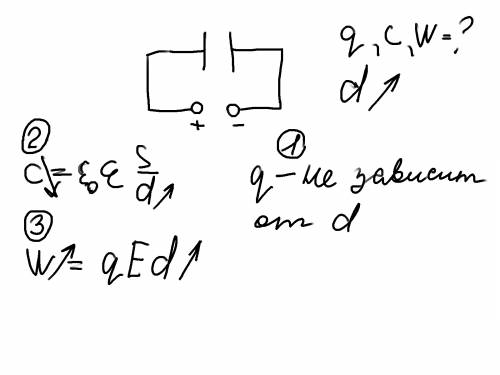 q, c, W = ?
d ↗
+ −
②
c↓ = ε₀ε S/d↗
①
q – не зависит
от d
③
W↗ = qEd↗